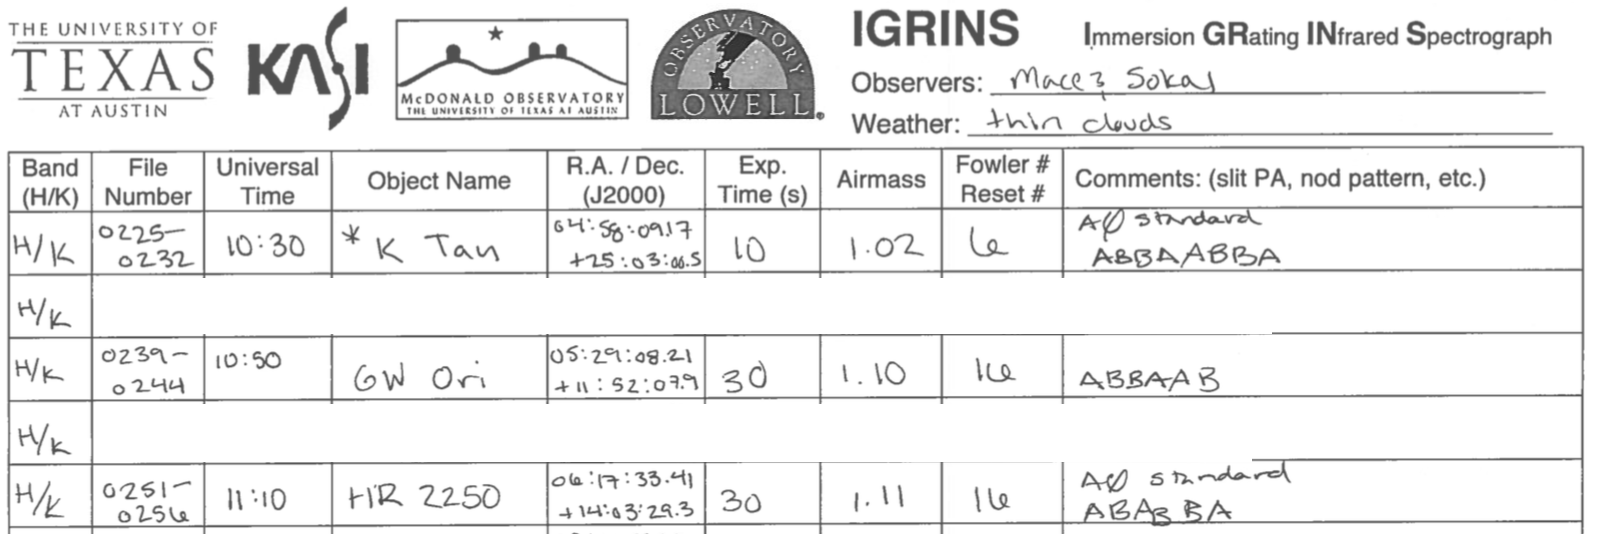 THE UNIVERSITY OF
TEXAS
AT AUSTIN
KASI
McDONALD OBSERVATORY
THE UNIVERSITY OF TEXAS AT AUSTIN
OBSERVATORY
LOWELL
IGRINS Immersion GRating INfrared Spectrograph
Observers: Mace & Sokal
Weather: thin clouds
Band (H/K) File Number Universal Time Object Name R.A. / Dec. (J2000) Exp. Time (s) Airmass Fowler # Reset # Comments: (slit PA, nod pattern, etc.)
H/K 0225-0232 10:30 * K Tau 04:58:09.17 +25:03:00.5 10 1.02 6 AØ standard ABBAABBA
H/K
H/K 0239-0244 10:50 GW Ori 05:29:08.21 +11:52:07.9 30 1.10 16 ABBAAB
H/K
H/K 0251-0256 11:10 HR 2250 06:17:33.41 +14:03:29.3 30 1.11 16 AØ standard ABABBA